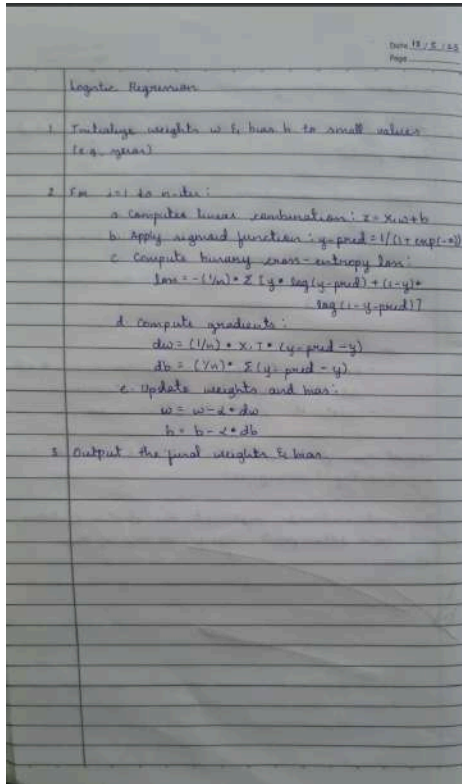 Date 13/5/25
Page
Logistic Regression
1. Initialize weights w & bias b to small values
(e.g. zeros)
2. For i=1 to n-iter:
a. Compute linear combination: z = X.w + b
b. Apply sigmoid function: y-pred = 1/(1+exp(-z))
c. Compute binary cross-entropy loss:
loss = -(1/n) * Σ [y * log(y-pred) + (1-y) *
log(1-y-pred)]
d. Compute gradients:
dw = (1/n) * X.T * (y-pred - y)
db = (1/n) * Σ(y-pred - y)
e. Update weights and bias:
w = w - α * dw
b = b - α * db
3. Output the final weights & bias